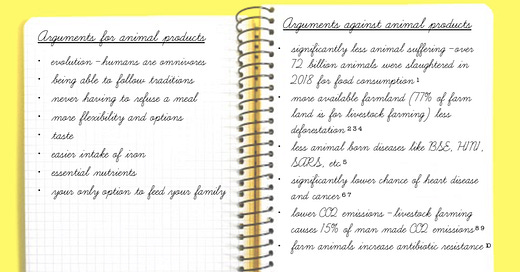 Arguments for animal products
• evolution - humans are omnivores
• being able to follow traditions
• never having to refuse a meal
• more flexibility and options
• taste
• easier intake of iron
• essential nutrients
• your only option to feed your family
Arguments against animal products
• significantly less animal suffering - over
72 billion animals were slaughtered in
2018 for food consumption 1
• more available farmland (77% of farm
land is for livestock farming) less
deforestation 2 3 4
• less animal born diseases like BSE, H1N1,
SARS, etc 5
• significantly lower chance of heart disease
and cancer 6 7
• lower CO2 emissions - livestock farming
causes 15% of man made CO2 emissions 8 9
• farm animals increase antibiotic resistance 10